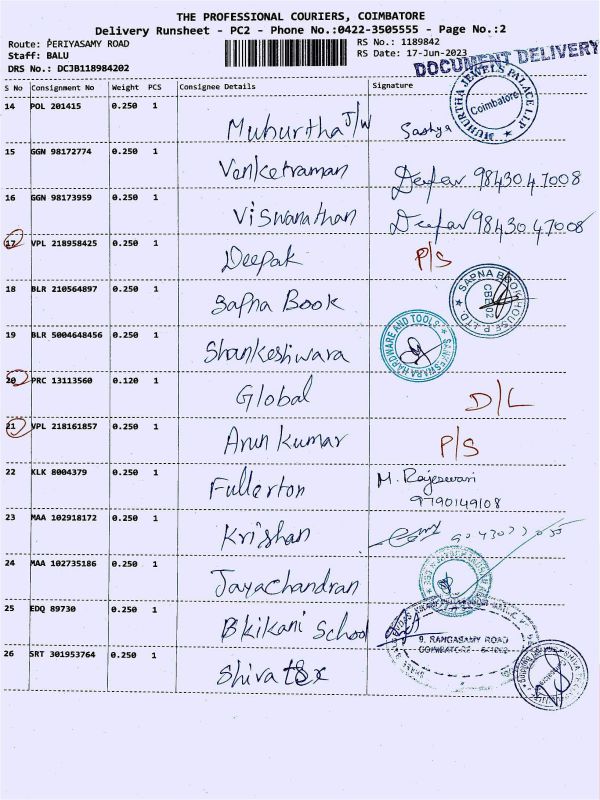 THE PROFESSIONAL COURIERS, COIMBATORE
Delivery Runsheet - PC2 - Phone No.:0422-3505555 - Page No.:2
Route: PERIYASAMY ROAD
Staff: BALU
DRS No.: DCJB118984202
RS No.: 1189842
RS Date: 17-Jun-2023
DOCUMENT DELIVERY
S No Consignment No Weight PCS Consignee Details Signature
14 POL 201415 0.250 1 Muhurtha J/W Sathya
MUHURTHA JEWELS PALACE LLP
Coimbatore
15 GGN 98172774 0.250 1 Venketraman 98430 47008
16 GGN 98173959 0.250 1 Viswanathan 98430 47008
17 VPL 218958425 0.250 1 Deepak P/S
18 BLR 210564897 0.250 1 Sapna Book
SAPNA BOOK HOUSE P. LTD.
CBE 02
19 BLR 5004648456 0.250 1 Shankeshwara
SANKESWARA HARDWARE AND TOOLS
20 PRC 13113560 0.120 1 Global D/L
21 VPL 218161857 0.250 1 Arun Kumar P/S
22 KLK 8004379 0.250 1 Fullerton M. Rajeswari
9790149108
23 MAA 102918172 0.250 1 Krishan
24 MAA 102735186 0.250 1 Jayachandran
25 EDQ 89730 0.250 1 Bkikani School
9, RANGASAMY ROAD
COIMBATORE
26 SRT 301953764 0.250 1 Shiva tex